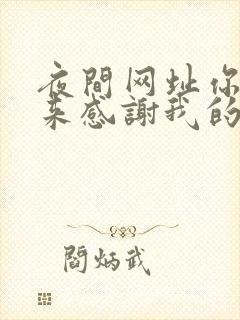 夜間网址你
来感謝我的
閻炳武